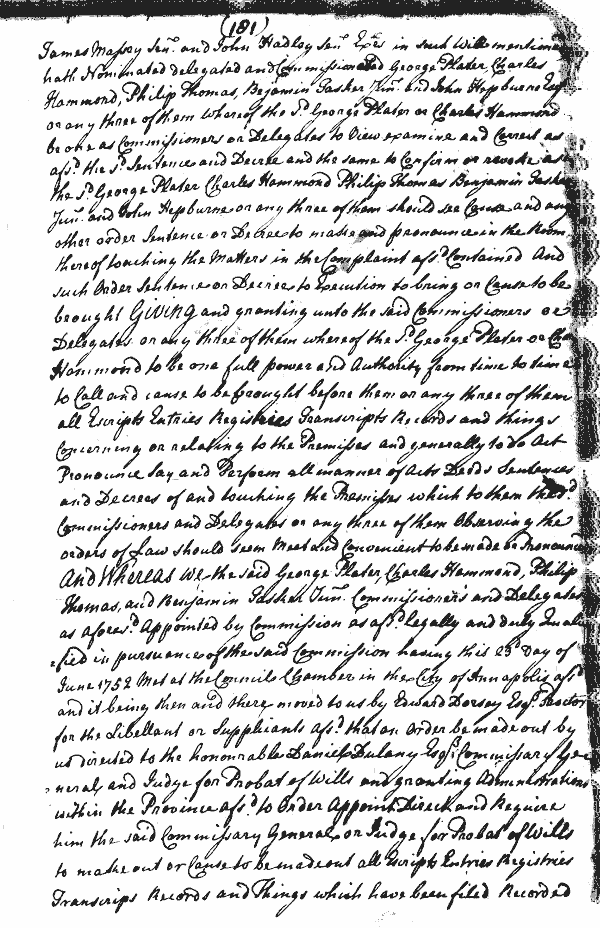 (181)
James Massoy Senr. and John Hadley Senr. Exrs in such Will mentioned
hath Nominated delegated and Commissionated George Plater, Charles
Hammond, Philip Thomas, Benjamin Tasker Junr. and John Hepburne Esqr
or any three of them whereof the Sd. George Plater or Charles Hammond
be one as Commissioners or Delegates to View examine and Correct as
afsd. the Sd. Sentence and Decree and the same to Confirm or revoke as
the Sd. George Plater Charles Hammond Philip Thomas Benjamin Tasker
Junr. and John Hepburne or any three of them should see Cause and any
other order Sentence or Decree to make and pronounce in the Room
thereof touching the Matters in the Complaint afsd. Contained And
such Order Sentence or Decree to Execution to bring or Cause to be
brought Giving and granting unto the said Commissioners or
Delegates or any three of them whereof the Sd. George Plater or Cha
Hammond to be one full power and Authority from time to time
to Call and cause to be brought before them or any three of them
all Escripts Entries Registries Transcripts Records and things
Concerning or relating to the Premisses and generally to do Act
Pronounce Say and Perform all manner of Acts Deeds Sentences
and Decrees of and touching the Premisses which to them the Sd.
Commissioners and Delegates or any three of them Observing the
orders of Law should seem Meet and Convenient to be made or Pronounced
And Whereas We the said George Plater, Charles Hammond, Philip
Thomas, and Benjamin Tasker Junr. Commissioners and Delegates
as aforesd. Appointed by Commission as afsd. legally and duly Quali
=fied in pursuance of the said Commission having this 23d Day of
June 1752 Met at the Councils Chamber in the City of Annapolis afsd
and it being then and there moved to us by Edward Dorsey Esqr. Proctor
for the Libellant or Suppliants afsd. that an Order be made out by
us directed to the honourable Daniel Dulany Esqr. Commissary Ge=
=neral, and Judge for Probat of Wills and granting Administrations
within the Province afsd. to Order Appoint Direct and Require
him the said Commissary General, or Judge for Probat of Wills
to make out or Cause to be made out all Escripts Entries Registries
Transcrips Records and Things which have been filed Recorded